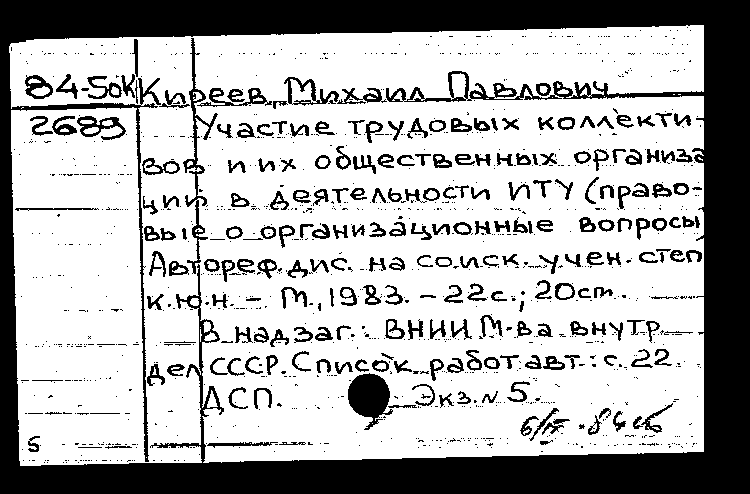 84-5ок Киреев, Михаил Павлович
2689 Участие трудовых коллекти-
вов и их общественных организа
ций в деятельности ИТУ (право-
вые о организационные вопросы)
Автореф. дис. на соиск. учен. степ
к.ю.н. - М., 1983. - 22 с.; 20 см.
В надзаг.: ВНИИ М-ва внутр.
дел СССР. Список работ авт.: с. 22.
ДСП. Экз. N 5.
5